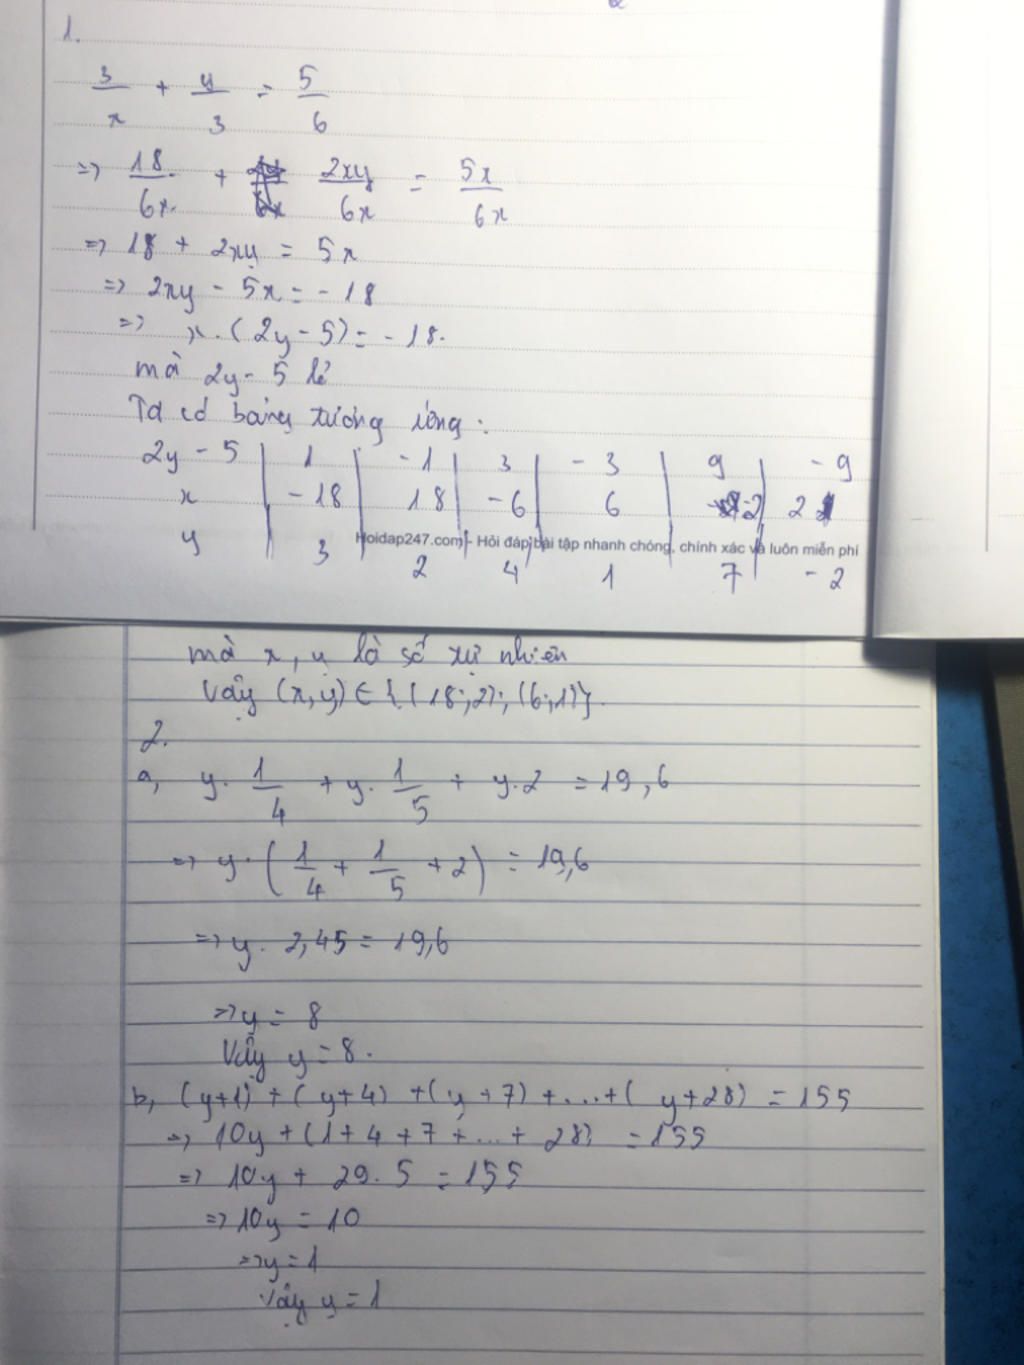 1.
3/x + y/3 = 5/6
=> 18/6x + 2xy/6x = 5x/6x
=> 18 + 2xy = 5x
=> 2xy - 5x = - 18
=> x. (2y - 5) = - 18.
mà 2y - 5 lẻ
Ta có bảng tương ứng :
2y - 5 | 1 | - 1 | 3 | - 3 | 9 | - 9
x | - 18 | 18 | - 6 | 6 | -2 | 2
Hoidap247.com - Hỏi đáp bài tập nhanh chóng, chính xác và luôn miễn phí
y | 3 | 2 | 4 | 1 | 7 | - 2
mà x, y là số tự nhiên
Vậy (x, y) ∈ {(18;2); (6;1)}.
2.
a, y. 1/4 + y. 1/5 + y.2 = 19,6
=> y. (1/4 + 1/5 + 2) = 19,6
=> y. 2,45 = 19,6
=> y = 8
Vậy y = 8.
b, (y+1) + (y+4) + (y+7) + ... + (y+28) = 155
=> 10y + (1+4+7+...+28) = 155
=> 10y + 29.5 = 155
=> 10y = 10
=> y = 1
Vậy y = 1